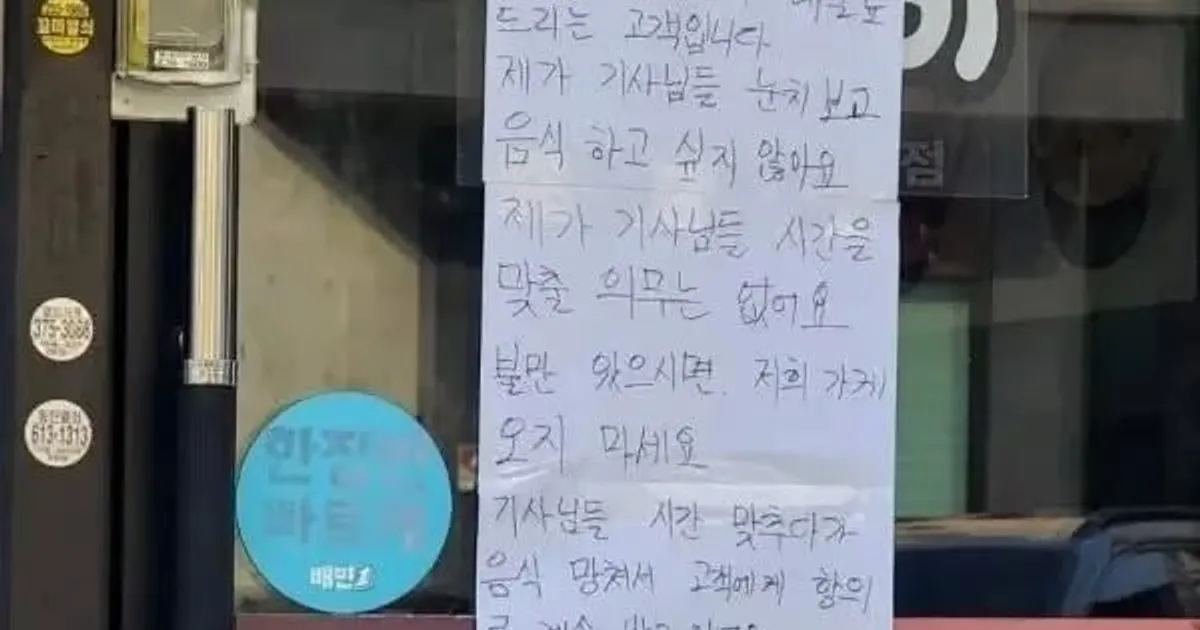 드리는 고객입니다
제가 기사님들 눈치 보고
음식 하고 싶지 않아요
제가 기사님들 시간을
맞출 의무는 없어요
불만 있으시면. 저희 가게
오지 마세요
기사님들 시간 맞추다가
음식 망쳐서 고객에게 항의
점
375-3066
613-1313
배민1